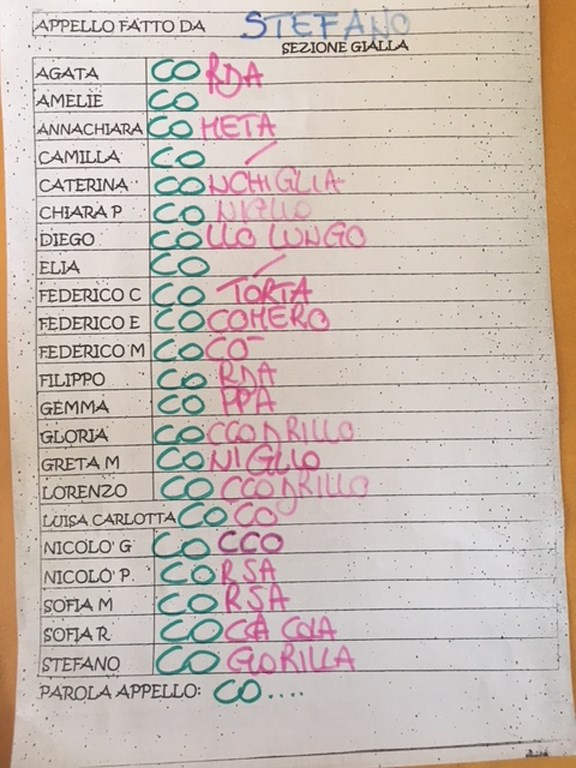 APPELLO FATTO DA STEFANO
SEZIONE GIALLA
AGATA CORDA
AMELIE CO
ANNACHIARA COMETA
CAMILLA CO /
CATERINA CONCHIGLIA
CHIARA P CONIGLIO
DIEGO COLLO LUNGO
ELIA CO /
FEDERICO C CO TORTA
FEDERICO E COCOMERO
FEDERICO M COCO
FILIPPO CORDA
GEMMA COPPA
GLORIA COCCODRILLO
GRETA M CONIGLIO
LORENZO COCCODRILLO
LUISA CARLOTTA COCO
NICOLO' G COCCO
NICOLO' P. CORSA
SOFIA M CORSA
SOFIA R COCCA COLA
STEFANO CO GORILLA
PAROLA APPELLO: CO....